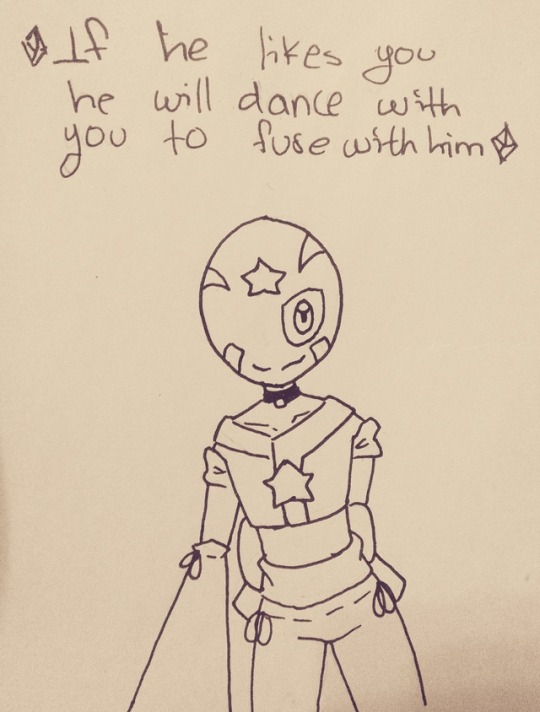 If he likes you
he will dance with
you to fuse with him